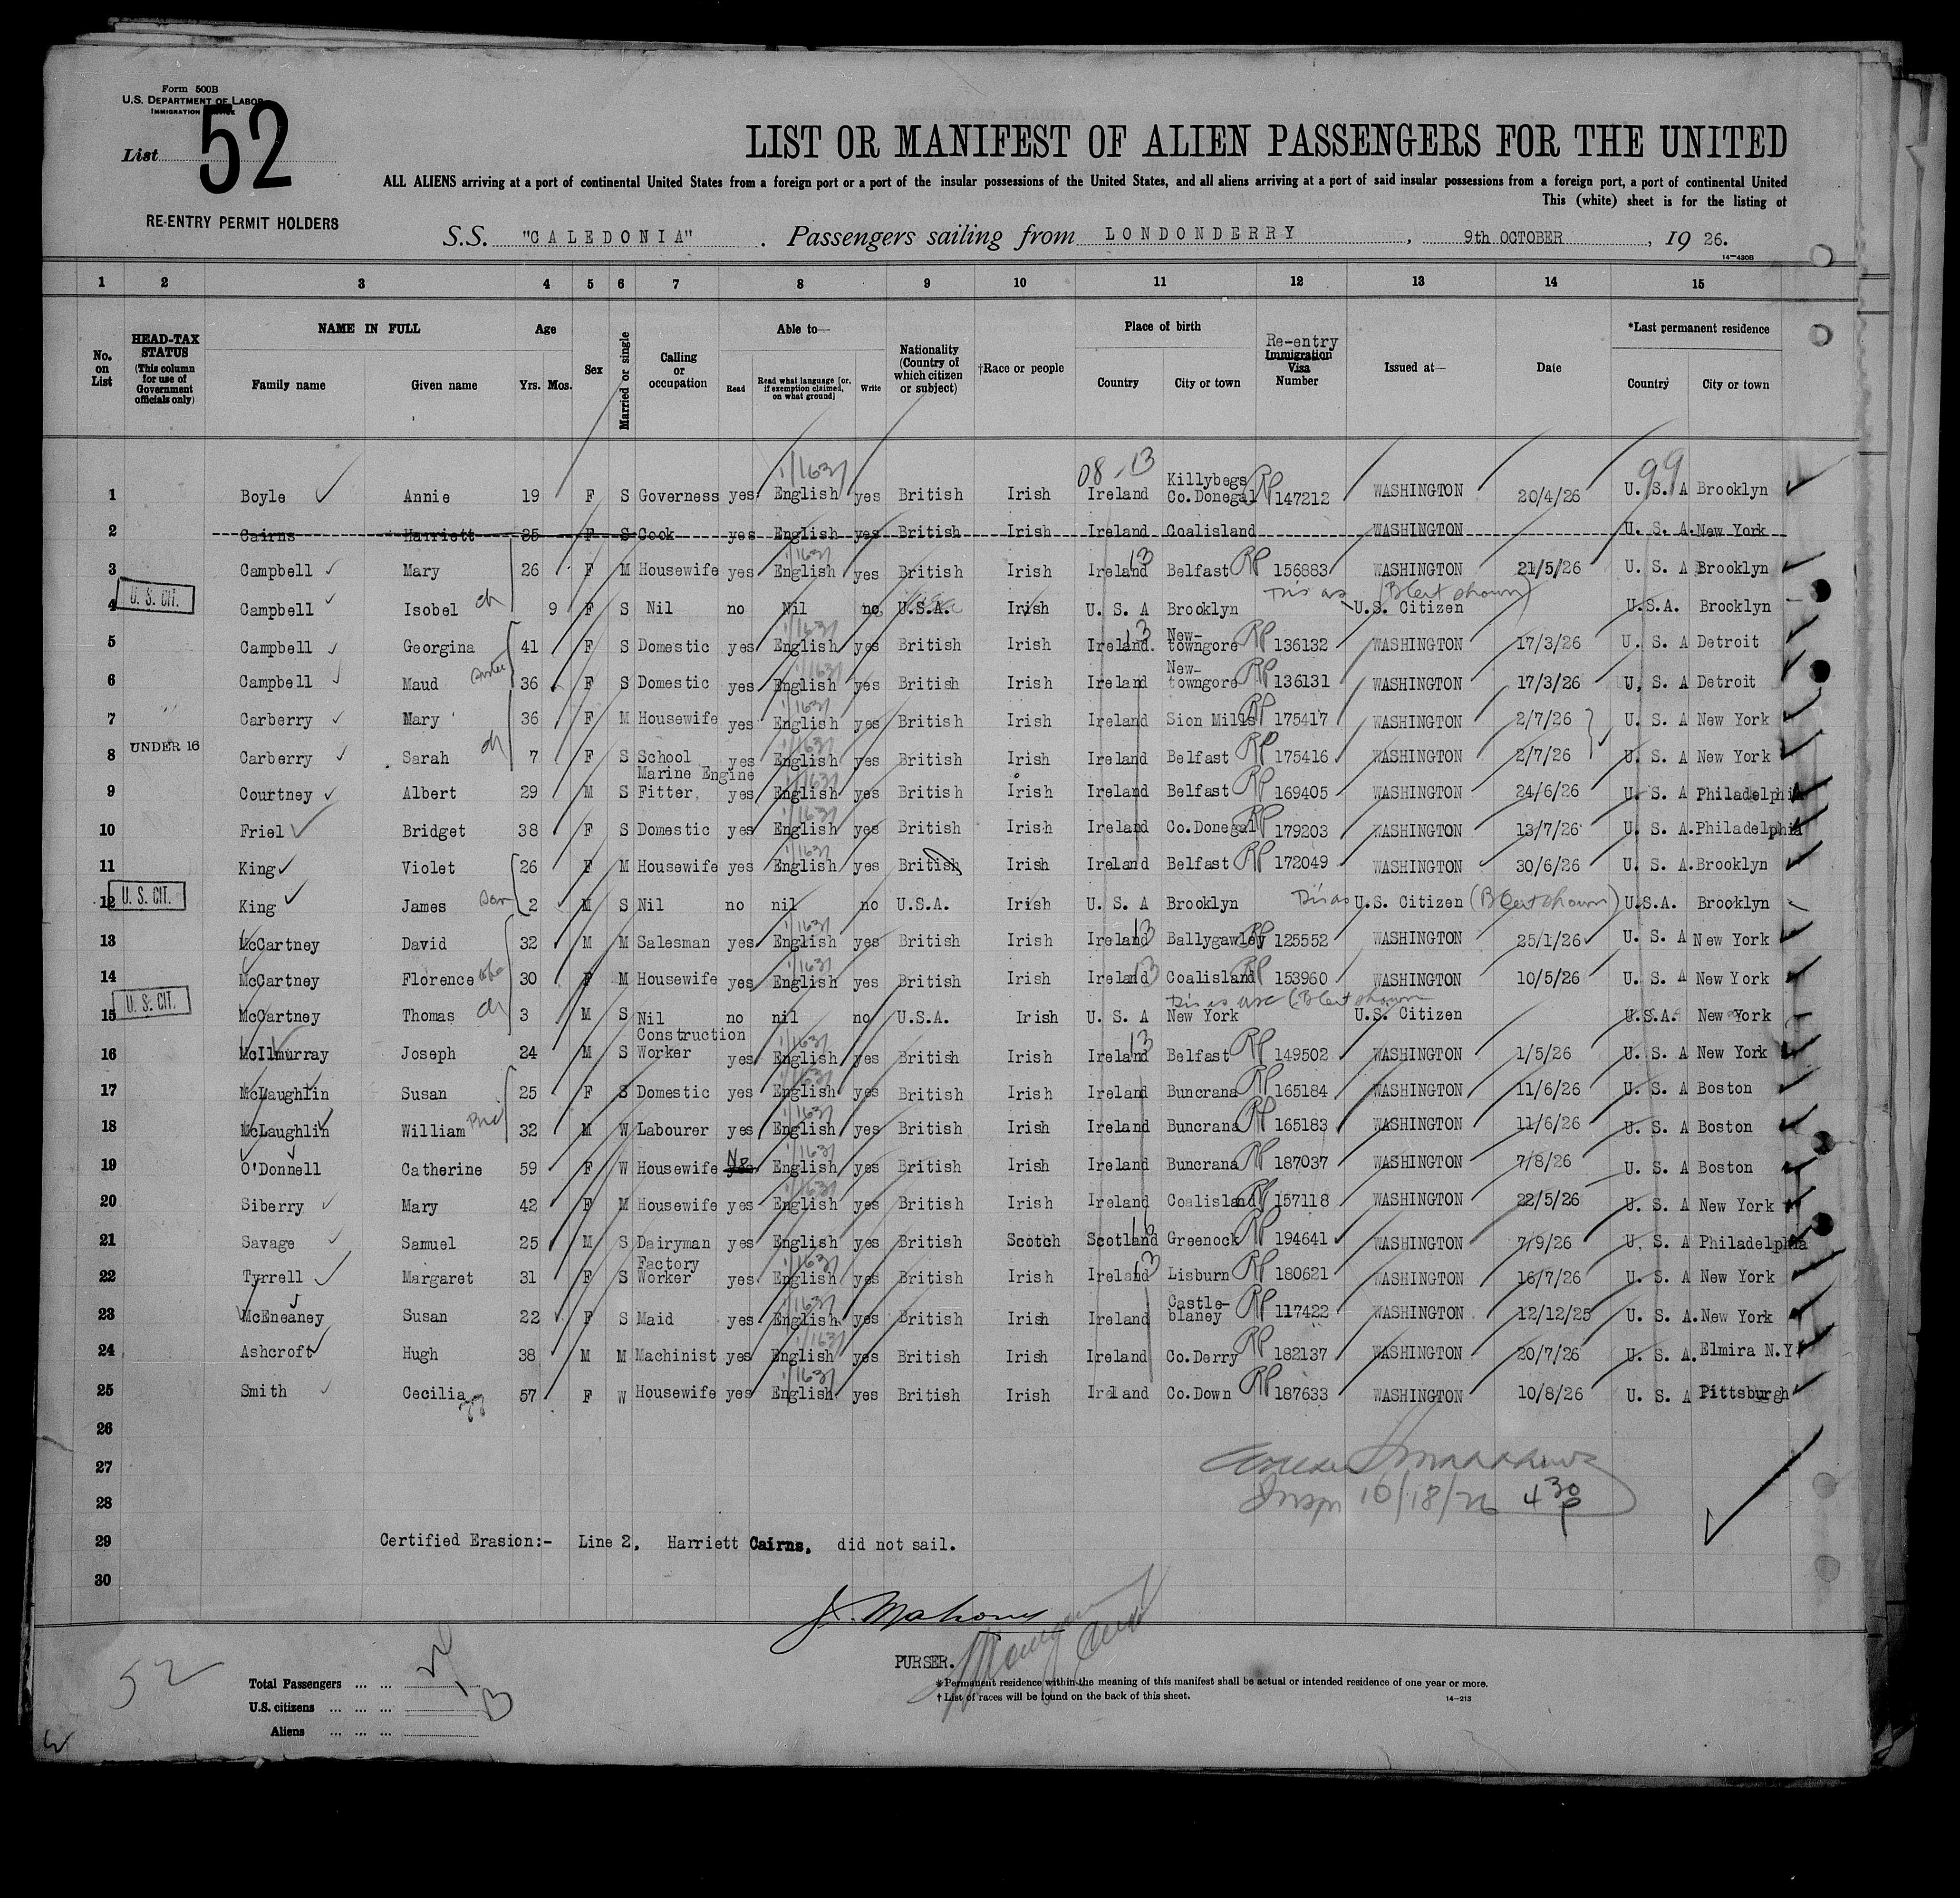 Form 500B
U.S. DEPARTMENT OF LABOR
IMMIGRATION
List 52
RE-ENTRY PERMIT HOLDERS
LIST OR MANIFEST OF ALIEN PASSENGERS FOR THE UNITED
ALL ALIENS arriving at a port of continental United States from a foreign port or a port of the insular possessions of the United States, and all aliens arriving at a port of said insular possessions from a foreign port, a port of continental United
This (white) sheet is for the listing of
S.S. "CALEDONIA". Passengers sailing from LONDONDERRY, 9th OCTOBER, 19 26.
14-430B
1 2 3 4 5 6 7 8 9 10 11 12 13 14 15
No. on List HEAD-TAX STATUS (This column for use of Government officials only) NAME IN FULL Family name Given name Age Yrs. Mos. Sex Married or single Calling or occupation Able to— Read Read what language [or, if exemption claimed, on what ground] Write Nationality (Country of which citizen or subject) †Race or people Place of birth Country City or town Re-entry Immigration Visa Number Issued at— Date *Last permanent residence Country City or town
08 13 99
1 Boyle Annie 19 F S Governess yes English yes British Irish Ireland Killybegs Co.Donegal RP 147212 WASHINGTON 20/4/26 U. S. A Brooklyn
2 Cairns Harriett 35 F S Cook yes English yes British Irish Ireland Coalisland WASHINGTON U. S. A. New York
3 Campbell Mary 26 F M Housewife yes English yes British Irish Ireland 13 Belfast RP 156883 WASHINGTON 21/5/26 U. S. A Brooklyn
U. S. CIT.
4 Campbell Isobel 9 F S Nil no Nil no U.S.A. Irish U. S. A Brooklyn U.S. Citizen U.S.A. Brooklyn
5 Campbell Georgina 41 F S Domestic yes English yes British Irish Ireland. 13 New-towngore RP 136132 WASHINGTON 17/3/26 U. S. A Detroit
6 Campbell Maud 36 F S Domestic yes English yes British Irish Ireland New-towngore RP 136131 WASHINGTON 17/3/26 U. S. A Detroit
7 Carberry Mary 36 F M Housewife yes English yes British Irish Ireland Sion Mills RP 175417 WASHINGTON 2/7/26 U. S. A New York
UNDER 16
8 Carberry Sarah 7 F S School yes English yes British Irish Ireland Belfast RP 175416 WASHINGTON 2/7/26 U. S. A New York
9 Courtney Albert 29 M S Marine Engine Fitter, yes English yes British Irish Ireland Belfast RP 169405 WASHINGTON 24/6/26 U. S. A Philadelphia
10 Friel Bridget 38 F S Domestic yes English yes British Irish Ireland Co.Donegal RP 179203 WASHINGTON 13/7/26 U. S. A. Philadelphia
11 King Violet 26 F M Housewife yes English yes British Irish Ireland Belfast RP 172049 WASHINGTON 30/6/26 U. S. A. Brooklyn
U. S. CIT.
12 King James 2 M S Nil no nil no U.S.A. Irish U. S. A Brooklyn U.S. Citizen U.S.A. Brooklyn
13 McCartney David 32 M M Salesman yes English yes British Irish Ireland 13 Ballygawley RP 125552 WASHINGTON 25/1/26 U. S. A New York
14 McCartney Florence 30 F M Housewife yes English yes British Irish Ireland 13 Coalisland RP 153960 WASHINGTON 10/5/26 U. S. A New York
U. S. CIT.
15 McCartney Thomas 3 M S Nil no nil no U.S.A. Irish U. S. A New York U.S. Citizen U.S.A. New York
16 McIlmurray Joseph 24 M S Construction Worker yes English yes British Irish Ireland 13 Belfast RP 149502 WASHINGTON 1/5/26 U. S. A New York
17 McLaughlin Susan 25 F S Domestic yes English yes British Irish Ireland Buncrana RP 165184 WASHINGTON 11/6/26 U. S. A Boston
18 McLaughlin William 32 M W Labourer yes English yes British Irish Ireland Buncrana RP 165183 WASHINGTON 11/6/26 U. S. A Boston
19 O'Donnell Catherine 59 F W Housewife No English yes British Irish Ireland Buncrana RP 187037 WASHINGTON 7/8/26 U. S. A Boston
20 Siberry Mary 42 F M Housewife yes English yes British Irish Ireland Coalisland RP 157118 WASHINGTON 22/5/26 U. S. A New York
21 Savage Samuel 25 M S Dairyman yes English yes British Scotch Scotland Greenock RP 194641 WASHINGTON 7/9/26 U. S. A Philadelphia
22 Tyrrell Margaret 31 F S Factory Worker yes English yes British Irish Ireland 13 Lisburn RP 180621 WASHINGTON 16/7/26 U. S. A New York
23 McEneaney Susan 22 F S Maid yes English yes British Irish Ireland Castle-blaney RP 117422 WASHINGTON 12/12/25 U. S. A. New York
24 Ashcroft Hugh 38 M M Machinist yes English yes British Irish Ireland Co.Derry RP 182137 WASHINGTON 20/7/26 U. S. A. Elmira N.Y.
25 Smith Cecilia 57 F W Housewife yes English yes British Irish Ireland Co.Down RP 187633 WASHINGTON 10/8/26 U. S. A Pittsburgh
26
27
28 Inspr 10/18/26 4 30 P
29 Certified Erasion:- Line 2, Harriett Cairns, did not sail.
30
J. Mahony
PURSER.
52
Total Passengers
U.S. citizens
Aliens
* Permanent residence within the meaning of this manifest shall be actual or intended residence of one year or more.
† List of races will be found on the back of this sheet.
14-213